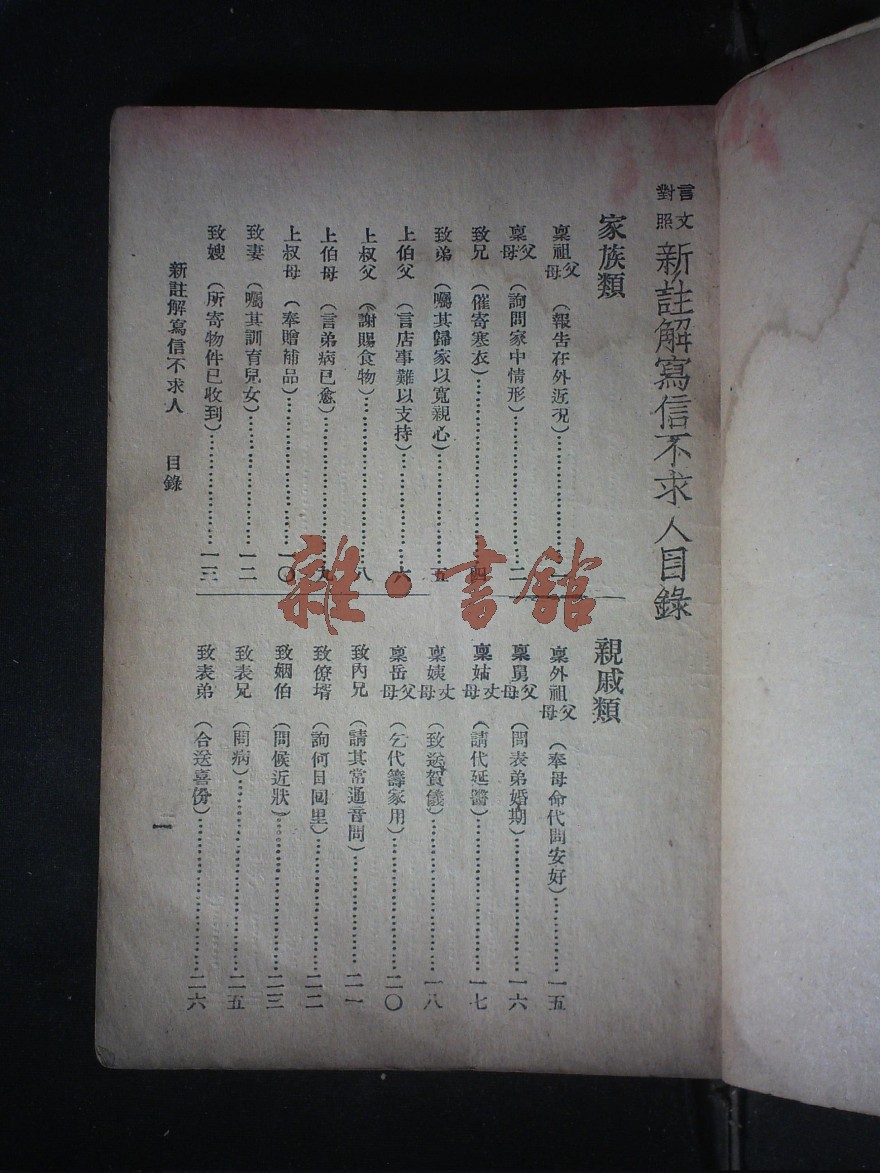 言文對照 新註解寫信不求人目錄
家族類
稟祖父母（報告在外近況）…………一
稟父母（詢問家中情形）…………二
致兄（催寄寒衣）…………四
致弟（囑其歸家以寬親心）…………五
上伯父（言店事難以支持）…………六
上叔父（謝賜食物）…………八
上伯母（言弟病已愈）…………九
上叔母（奉贈補品）…………一〇
致妻（囑其訓育兒女）…………一二
致嫂（所寄物件已收到）…………一三
親戚類
稟外祖父母（奉母命代問安好）…………一五
稟舅父母（問表弟婚期）…………一六
稟姑丈母（請代延醫）…………一七
稟姨丈母（致送賀儀）…………一八
稟岳父母（乞代籌家用）…………二〇
致內兄（請其常通音問）…………二一
致僚壻（詢何日回里）…………二二
致姻伯（問候近狀）…………二三
致表兄（問病）…………二五
致表弟（合送喜份）…………二六
新註解寫信不求人 目錄
一
雜·書館